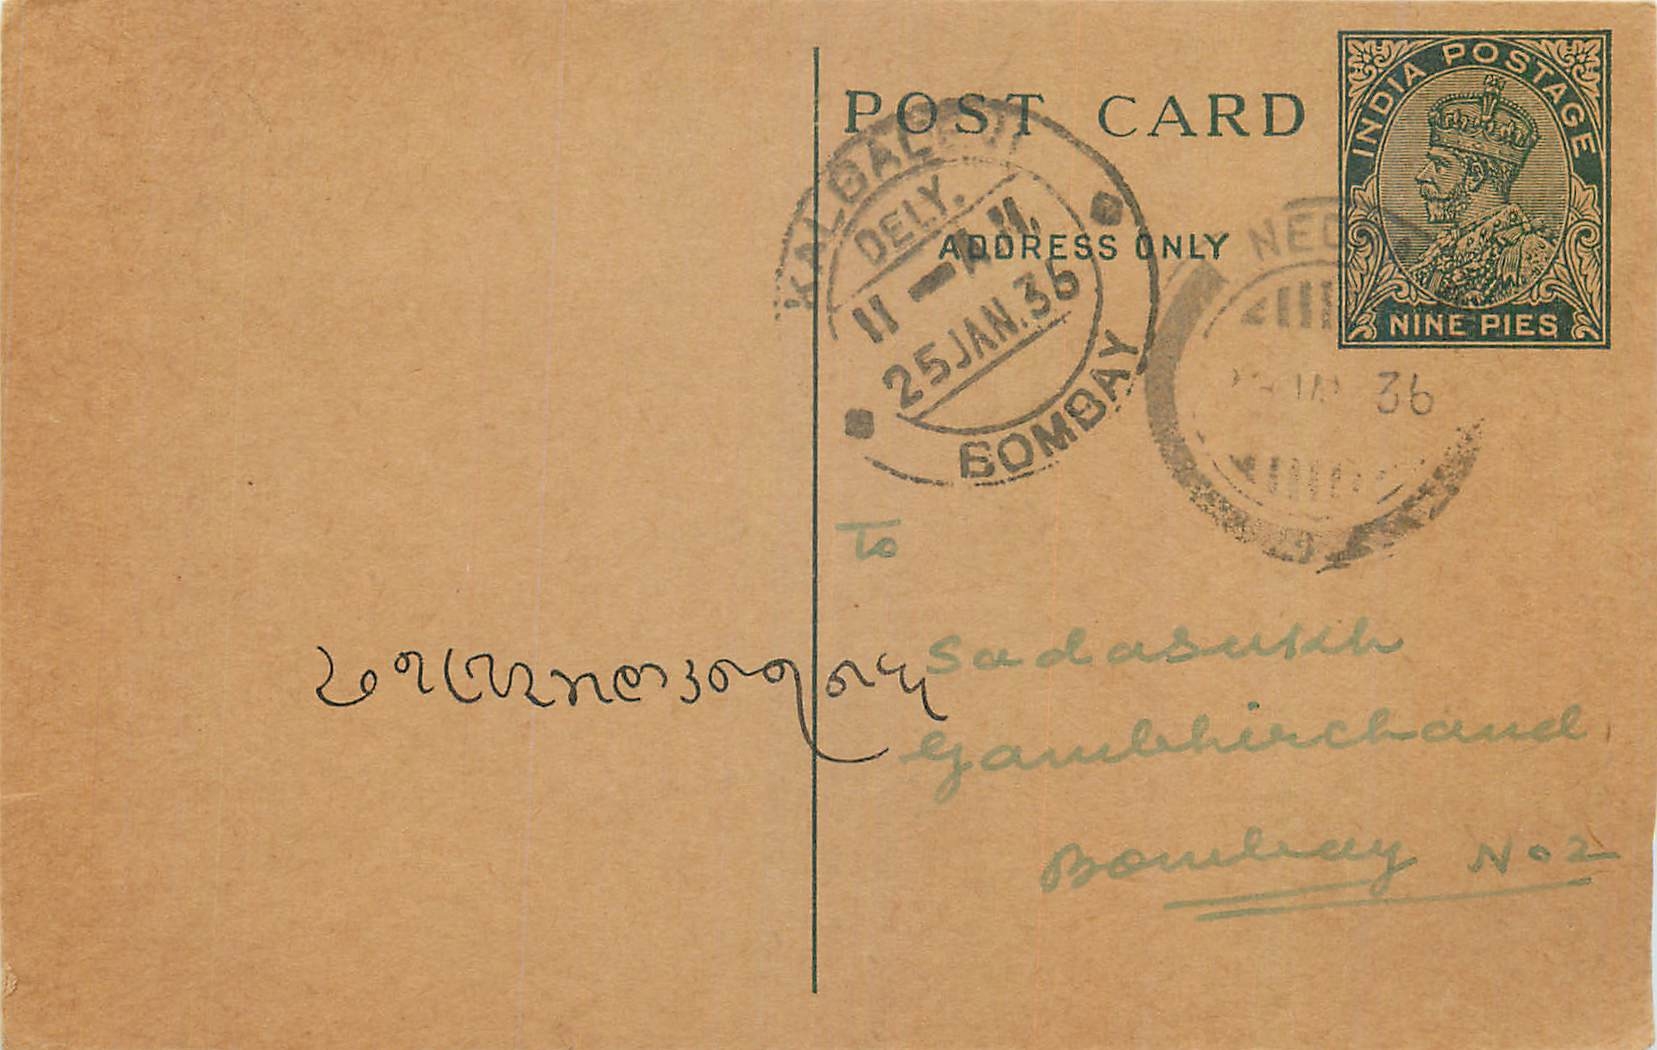 POST CARD
INDIA POSTAGE
ADDRESS ONLY
NINE PIES
KALBADEVI
DELY.
11 – A M.
25 JAN. 36
BOMBAY
36
To
Sadasukh
Gambhirchand
Bombay No 2